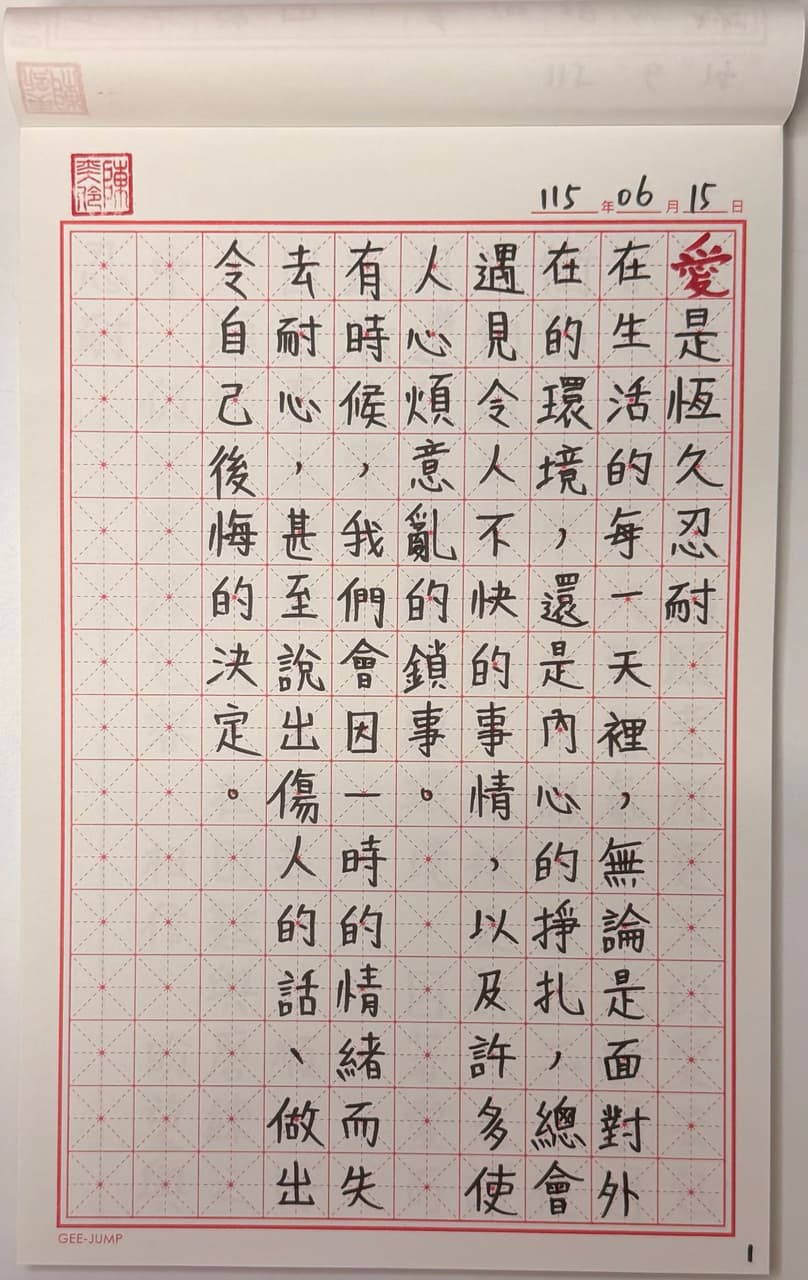 115年06月15日
愛是恆久忍耐
在生活的每一天裡，無論是面對外
在的環境，還是內心的掙扎，總會
遇見令人不快的事情，以及許多使
人心煩意亂的鎖事。
有時候，我們會因一時的情緒而失
去耐心，甚至說出傷人的話、做出
令自己後悔的決定。
GEE-JUMP
1